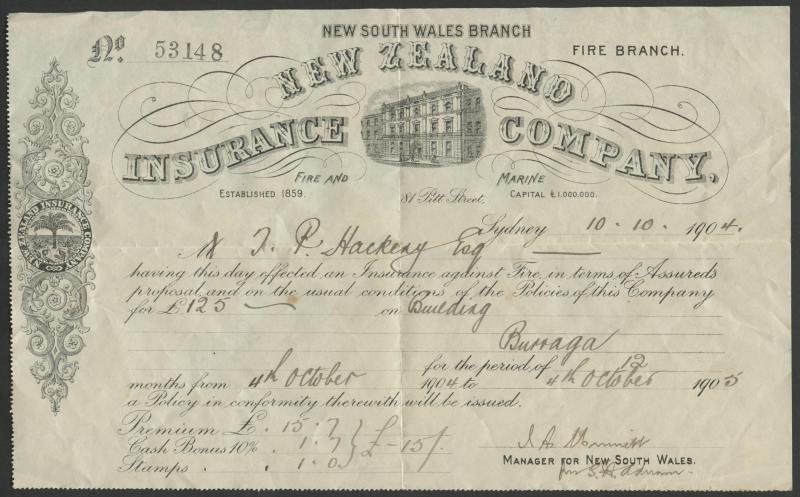 NEW SOUTH WALES BRANCH
No. 53148
FIRE BRANCH.
NEW ZEALAND
INSURANCE COMPANY.
FIRE AND MARINE
ESTABLISHED 1859.
81 Pitt Street,
CAPITAL £1,000,000.
Sydney 10-10-1904.
M T. P. Hackeny Esq
having this day effected an Insurance against Fire, in terms of Assureds
proposal, and on the usual conditions of the Policies of this Company
for £125 — on Building
Burraga
for the period of 12
months from 4th October 1904 to 4th October 1905
a Policy in conformity therewith will be issued.
Premium £. 15:7
Cash Bonus 10% . 1.7
£-15/-
Stamps . . 1.0
MANAGER FOR NEW SOUTH WALES.
NEW ZEALAND INSURANCE COMPANY